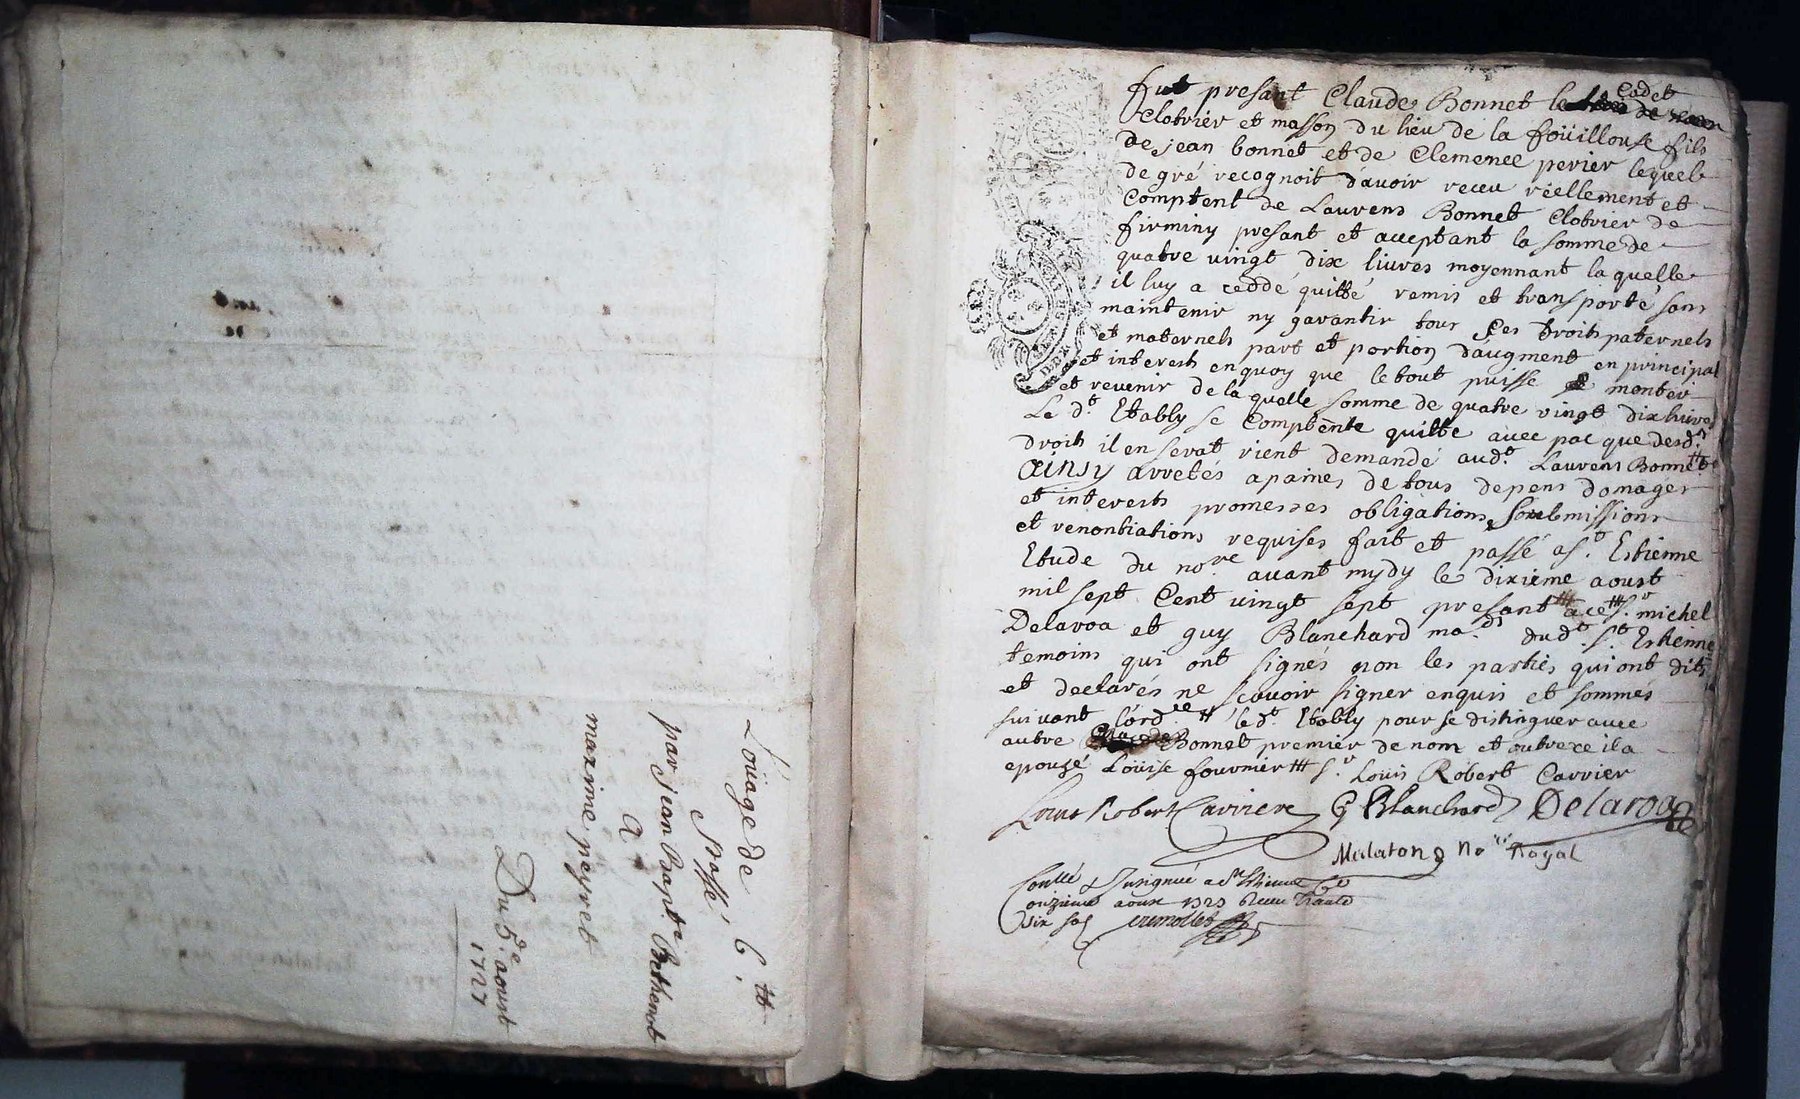 Loüage de 6.tt
passé
par jean Bapt.te Bethenot
A
maxime peyret
Du 5.e aoust
1727
fut presant Claude Bonnet le Cadet
Clotrier et masson du lieu de la foüillouse fils
de jean bonnet et de Clemence perier lequel
de gré recognoit d'avoir receu réellement et
Comptent de Laurens Bonnet Clotrier de
firminy presant et aceptant la somme de
quatre vingt dix livres moyennant laquelle
il luy a ceddé quitté remis et transporté sans
maintenir ny garantir tous ses Droits paternels
et maternels part et portion d'augment en principal
et interests en quoy que le tout puisse monter
et revenir de la quelle somme de quatre vingt dix livres
Le d.t Etably se Comptente quitte avec pac que desd.
droits il en serat rient demandé aud.t Laurens Bonnet
Ainsy arretés a paines de tous depens domages
et interests promesses obligations, soubmissions
et renontiations requises fait et passé a S.t Estienne
Etude du no.re avant mydy le dixieme aoust
mil sept Cent vingt sept presant a ce S.r michel
Delaroa et guy Blanchard ma.ds dud.t S.t Estienne
temoins qui ont signés non les parties qui ont dits
et declarés ne scavoir signer enquis et sommés
suivant l'ord.ce # le d.t Etably pour se distinguer avec
autre Bonnet premier de nom et outre ce il a
epousé Loüise fournier ## S.r Loüis Robert Carrier
Louis Robert Carriere G Blanchard Delaroa
Malaton No.re Royal
Conllé & Insignué a S.t Estienne Le
onzieme aoust 1727 Receu
six sols